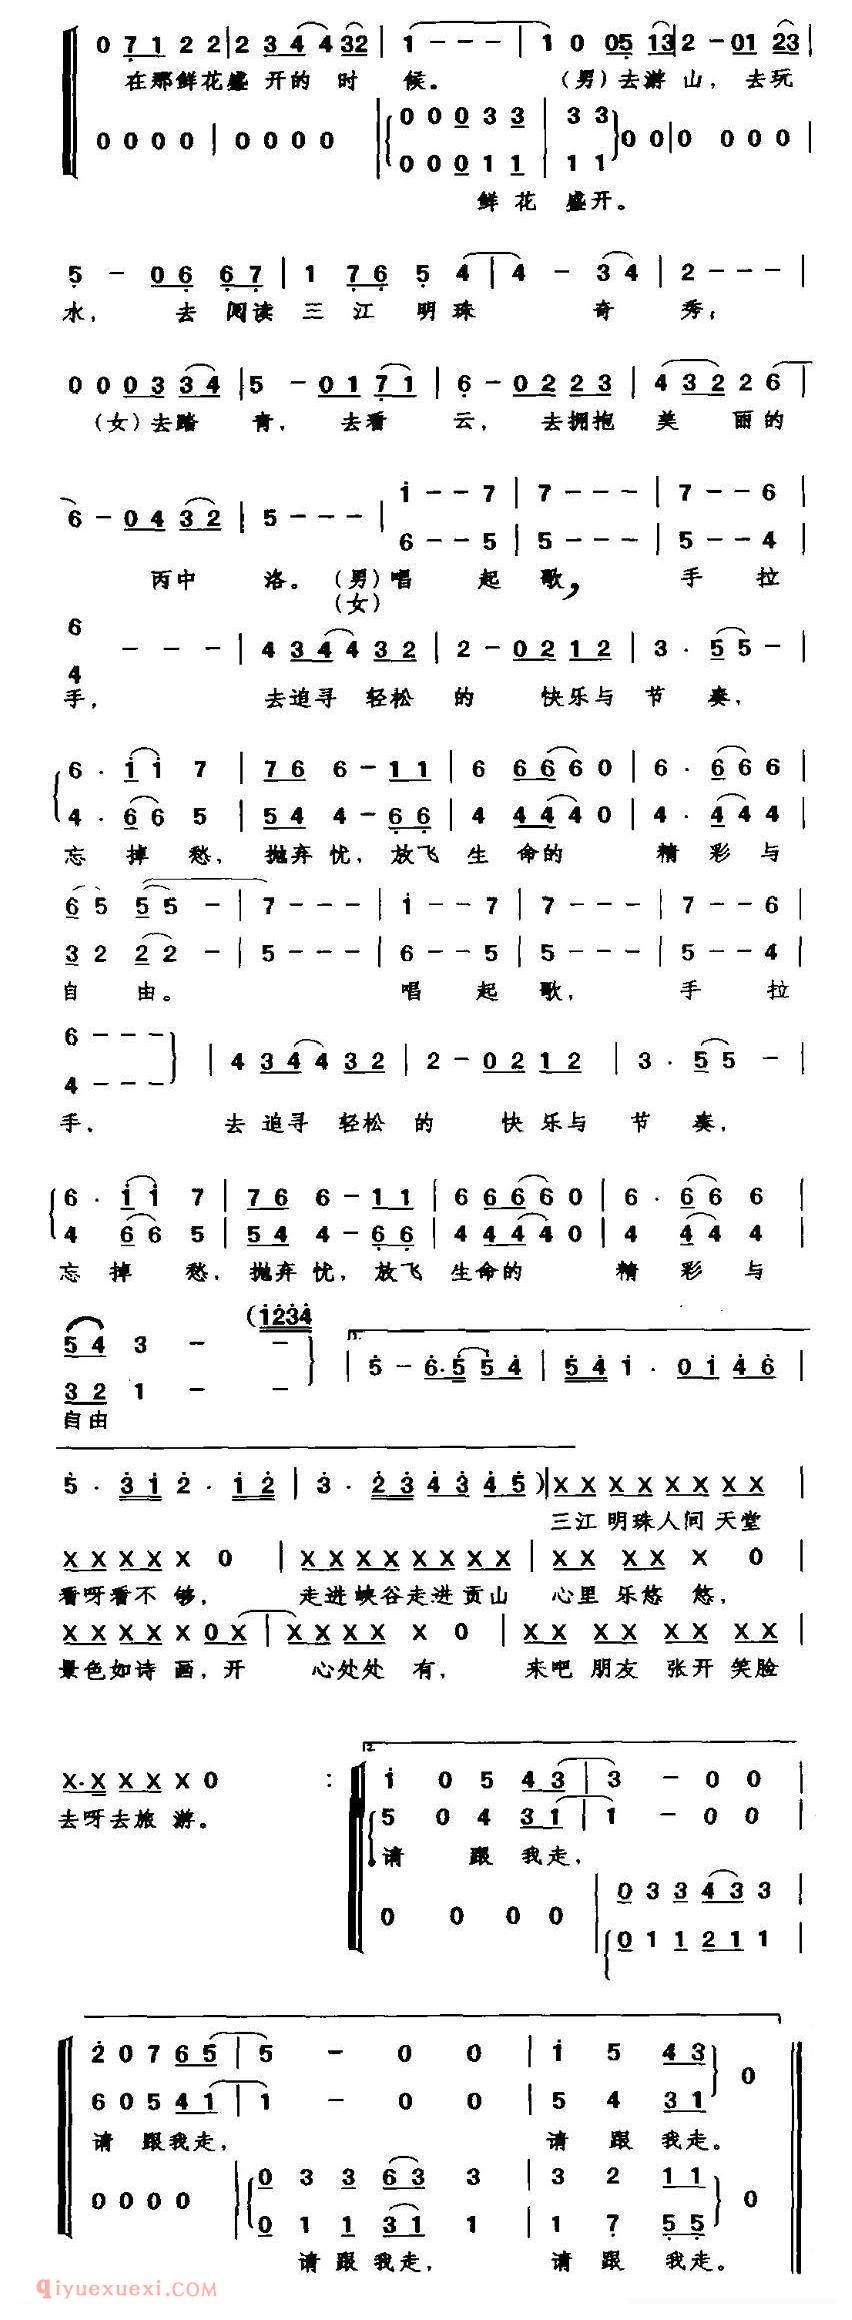 0 7 1 2 2 | 2 3 4 4 3 2 | 1 - - - | 1 0 0 5 1 3 | 2 - 0 1 2 3 |
在那鲜花盛 开的 时 候。 (男)去游 山, 去玩
0 0 0 3 3 | 3 3
0 0 0 0 | 0 0 0 0 | 0 0 | 0 0 0 0 |
0 0 0 1 1 | 1 1
鲜 花 盛开。
5 - 0 6 6 7 | 1 7 6 5 4 | 4 - 3 4 | 2 - - - |
水, 去 阅读 三 江 明 珠 奇 秀;
0 0 0 3 3 3 4 | 5 - 0 1 7 1 | 6 - 0 2 2 3 | 4 3 2 2 6 |
(女)去踏 青, 去看 云, 去拥抱 美 丽的
i - - 7 | 7 - - - | 7 - - 6 |
6 - 0 4 3 2 | 5 - - - |
6 - - 5 | 5 - - - | 5 - - 4 |
丙中 洛。 (男)唱 起 歌, 手 拉
(女)
6
- - - | 4 3 4 4 3 2 | 2 - 0 2 1 2 | 3 · 5 5 - |
4
手, 去追寻 轻松 的 快乐与 节 奏,
6 · i i 7 | 7 6 6 - 1 1 | 6 6 6 6 0 | 6 · 6 6 6 |
4 · 6 6 5 | 5 4 4 - 6 6 | 4 4 4 4 0 | 4 · 4 4 4 |
忘 掉 愁, 抛弃 忧, 放飞 生 命的 精 彩 与
6 5 5 5 - | 7 - - - | i - - 7 | 7 - - - | 7 - - 6 |
3 2 2 2 - | 5 - - - | 6 - - 5 | 5 - - - | 5 - - 4 |
自 由。 唱 起 歌, 手 拉
6 - - -
| 4 3 4 4 3 2 | 2 - 0 2 1 2 | 3 · 5 5 - |
4 - - -
手, 去 追寻 轻松 的 快 乐与 节 奏,
6 · i i 7 | 7 6 6 - 1 1 | 6 6 6 6 0 | 6 · 6 6 6 |
4 6 6 5 | 5 4 4 - 6 6 | 4 4 4 4 0 | 4 4 4 4 |
忘 掉 愁, 抛弃 忧, 放飞 生命的 精 彩 与
(1 2 3 4
5 4 3 - -
1.
| 5 - 6 · 5 5 4 | 5 4 1 · 0 1 4 6 |
3 2 1 - -
自由
5 · 3 1 2 · 1 2 | 3 · 2 3 4 3 4 5 ) | X X X X X X X X |
三江 明珠人间 天堂
X X X X X 0 | X X X X X X X X | X X X X X 0 |
看呀看不 够, 走进峡谷走进贡山 心里 乐悠 悠,
X X X X X 0 X | X X X X X 0 | X X X X X X X X |
景色如诗 画,开 心处处 有, 来吧 朋友 张开 笑脸
2.
X · X X X X 0 : i 0 5 4 3 | 3 - 0 0 |
去呀去旅 游。
5 0 4 3 1 | 1 - 0 0 |
请 跟 我走,
0 3 3 4 3 3 |
0 0 0 0
0 1 1 2 1 1 |
2 0 7 6 5 | 5 - 0 0 | i 5 4 3
0
6 0 5 4 1 | 1 - 0 0 | 5 4 3 1
请 跟我走, 请 跟 我走。
0 3 3 6 3 3 | 3 2 1 1
0 0 0 0 0
0 1 1 3 1 1 | 1 7 5 5
请 跟 我走, 请 跟 我走。
qiyuexuexi.COM